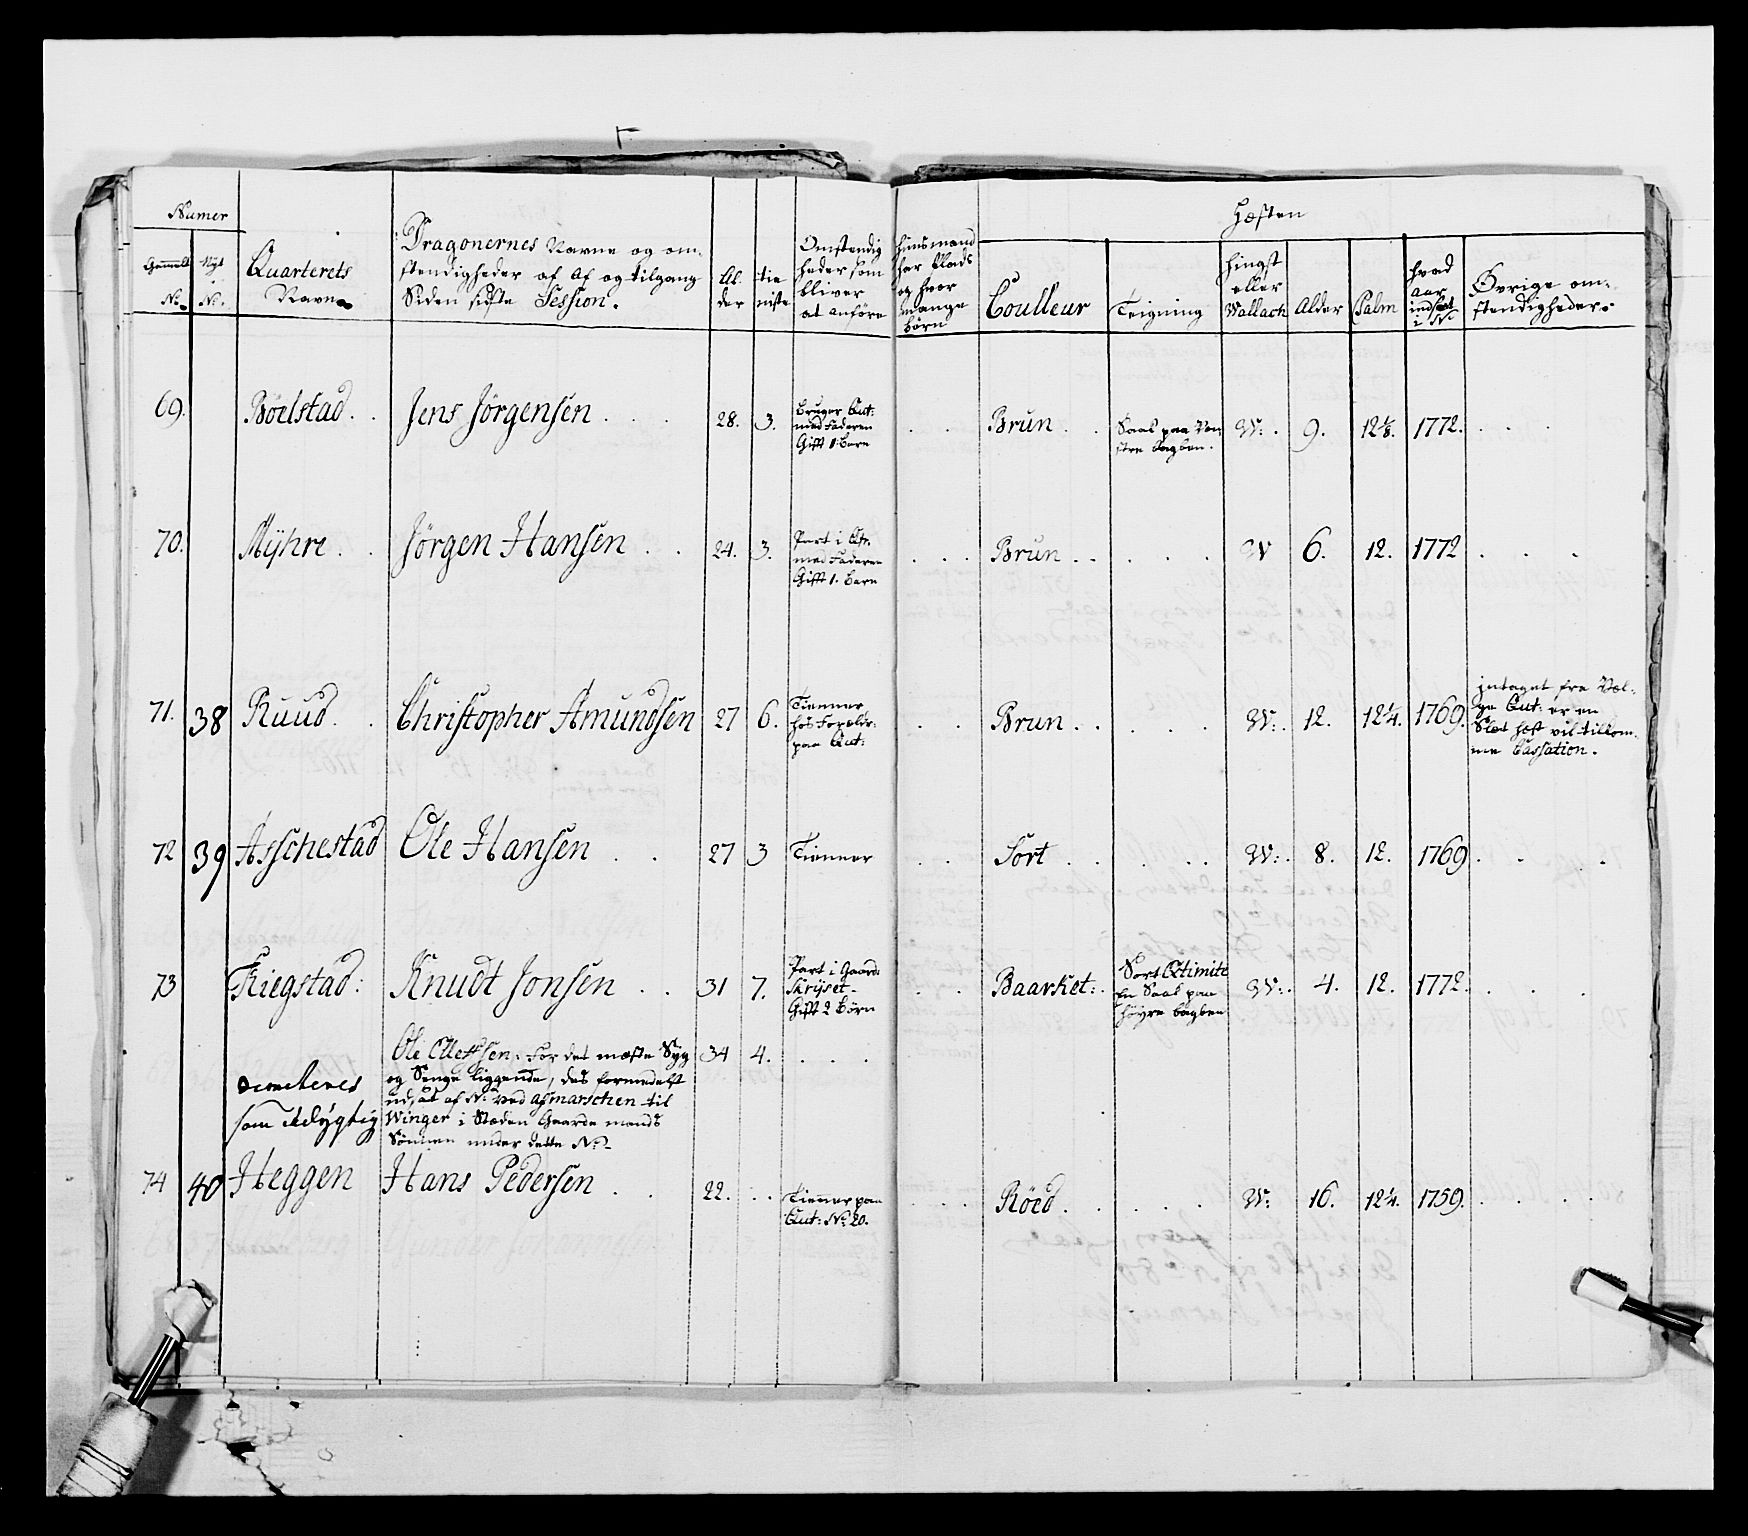 Numer
Gammelt No. Nyt No.
Quarterets Navne
Dragonernes Navne og om-
stendigheder af Af og tilgang
Siden sidste Session.
Al der
tie niste
Omstendig
heder som
bliver
at anføre
huusmand
har Plads
og hvor
mange
børn
Hæsten
Coulleur
Teigning
hingst
eller
Wallach
Alder
Palm
hvad
Aar
indsat
i No
Øvrige om-
stendigheder.
69. Böelstad . . Jens Jörgensen . . . 28. 3.
bruger Qut:
med Faderen
Gift 1. barn
. . Brun . .
Saal paa Ven
stre bagben.
W: . 9. 12⅛. 1772. . . .
70. Mÿhre . . Jörgen Hansen . . 24. 3.
Part i Qr.
med Faderen
Gift 1. barn
. . . Brun . . . . . W 6. 12. 1772 . . .
71. 38 Ruud . . Christopher Amundsen 27 6.
Tienner
hos Forældr:
paa Qut:
. . Brun . . . . . W: . 12. 12¼. 1769.
intaget fra Vol-
ge Qut: er en
Slet hest vil tilkom-
me Cassation.
72 39 Asschestad Ole Hansen . . 27 3 Tienner . . Sort . . . . W: . 8. 12. 1769 . . .
73 Kiegstad: Knudt Jonsen . . 31 7.
Part i Gaard
Skrÿset-
Gift 2 börn
. . Baarket: .
Sort
En Saal paa
höyre bagben
W: . 4. 12. 1772. . . .
Ole Ellefsen. For det mæste Syg 34 4. . . .
og Senge liggende, des formedelst
udsat af No. ved Afmarschen til
Winger i Stæden Gaarde mands
Sönnen under dette No.
som udygtig
74 40 Heggen Hans Pedersen . . 22. . .
Tienner paa
Qut: No. 20.
. . . Röed . . . . . W: 16. 12¼. 1759. . . . .